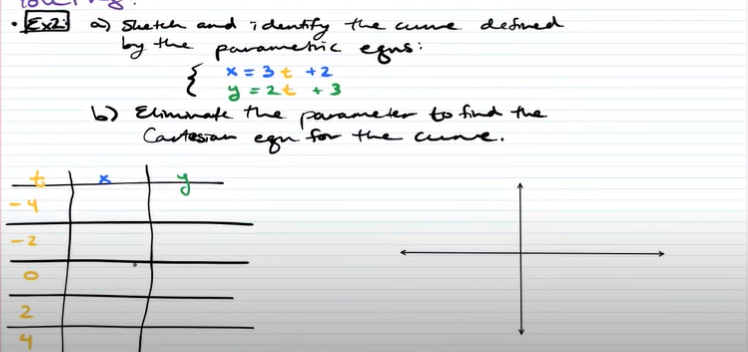 • Ex2: a) Sketch and identify the curve defined
by the parametric eqns:
{ x = 3t + 2
y = 2t + 3
b) Eliminate the parameter to find the
Cartesian eqn for the curve.
t x y
-4
-2
0
2
4